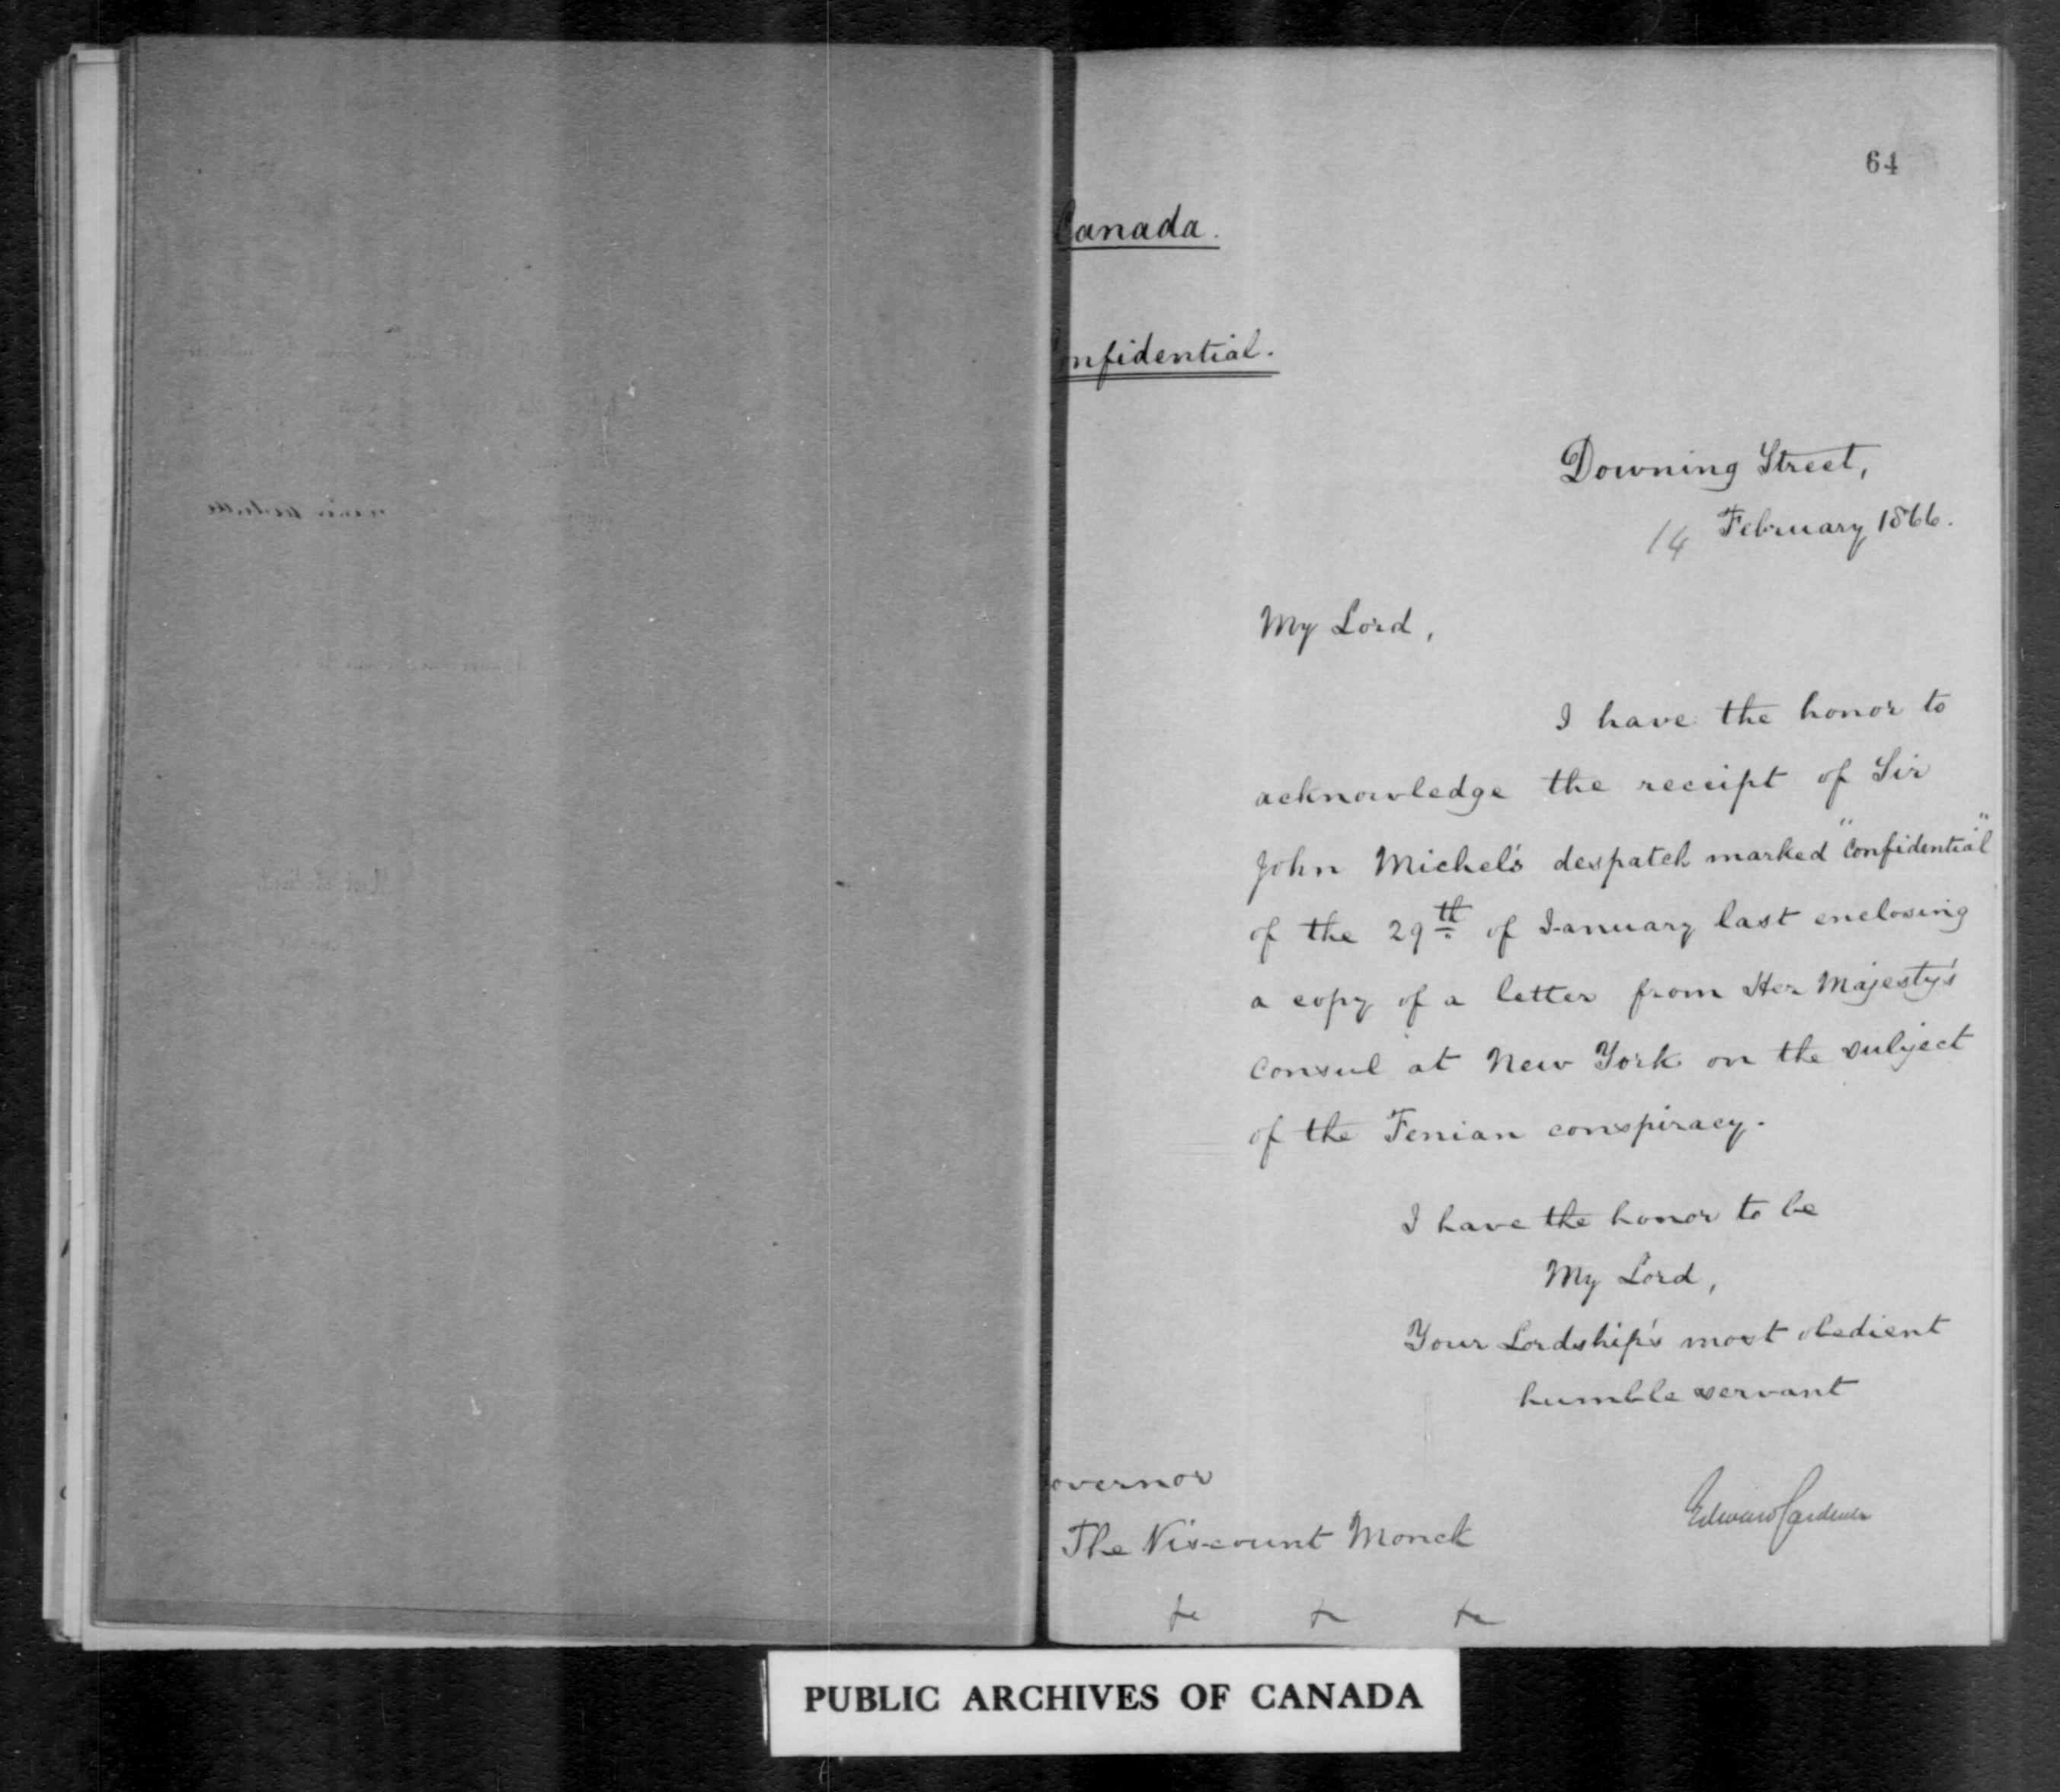 64
Canada.
onfidential.
Downing Street,
14 February 1866.
My Lord,
I have the honor to
acknowledge the receipt of Sir
John Michel's despatch marked "Confidential"
of the 29th of January last enclosing
a copy of a letter from Her Majesty's
Consul at New York on the subject
of the Fenian conspiracy.
I have the honor to be
My Lord,
Your Lordship's most obedient
humble servant
Edward Cardwell
overnor
The Viscount Monck
&c &c &c
PUBLIC ARCHIVES OF CANADA